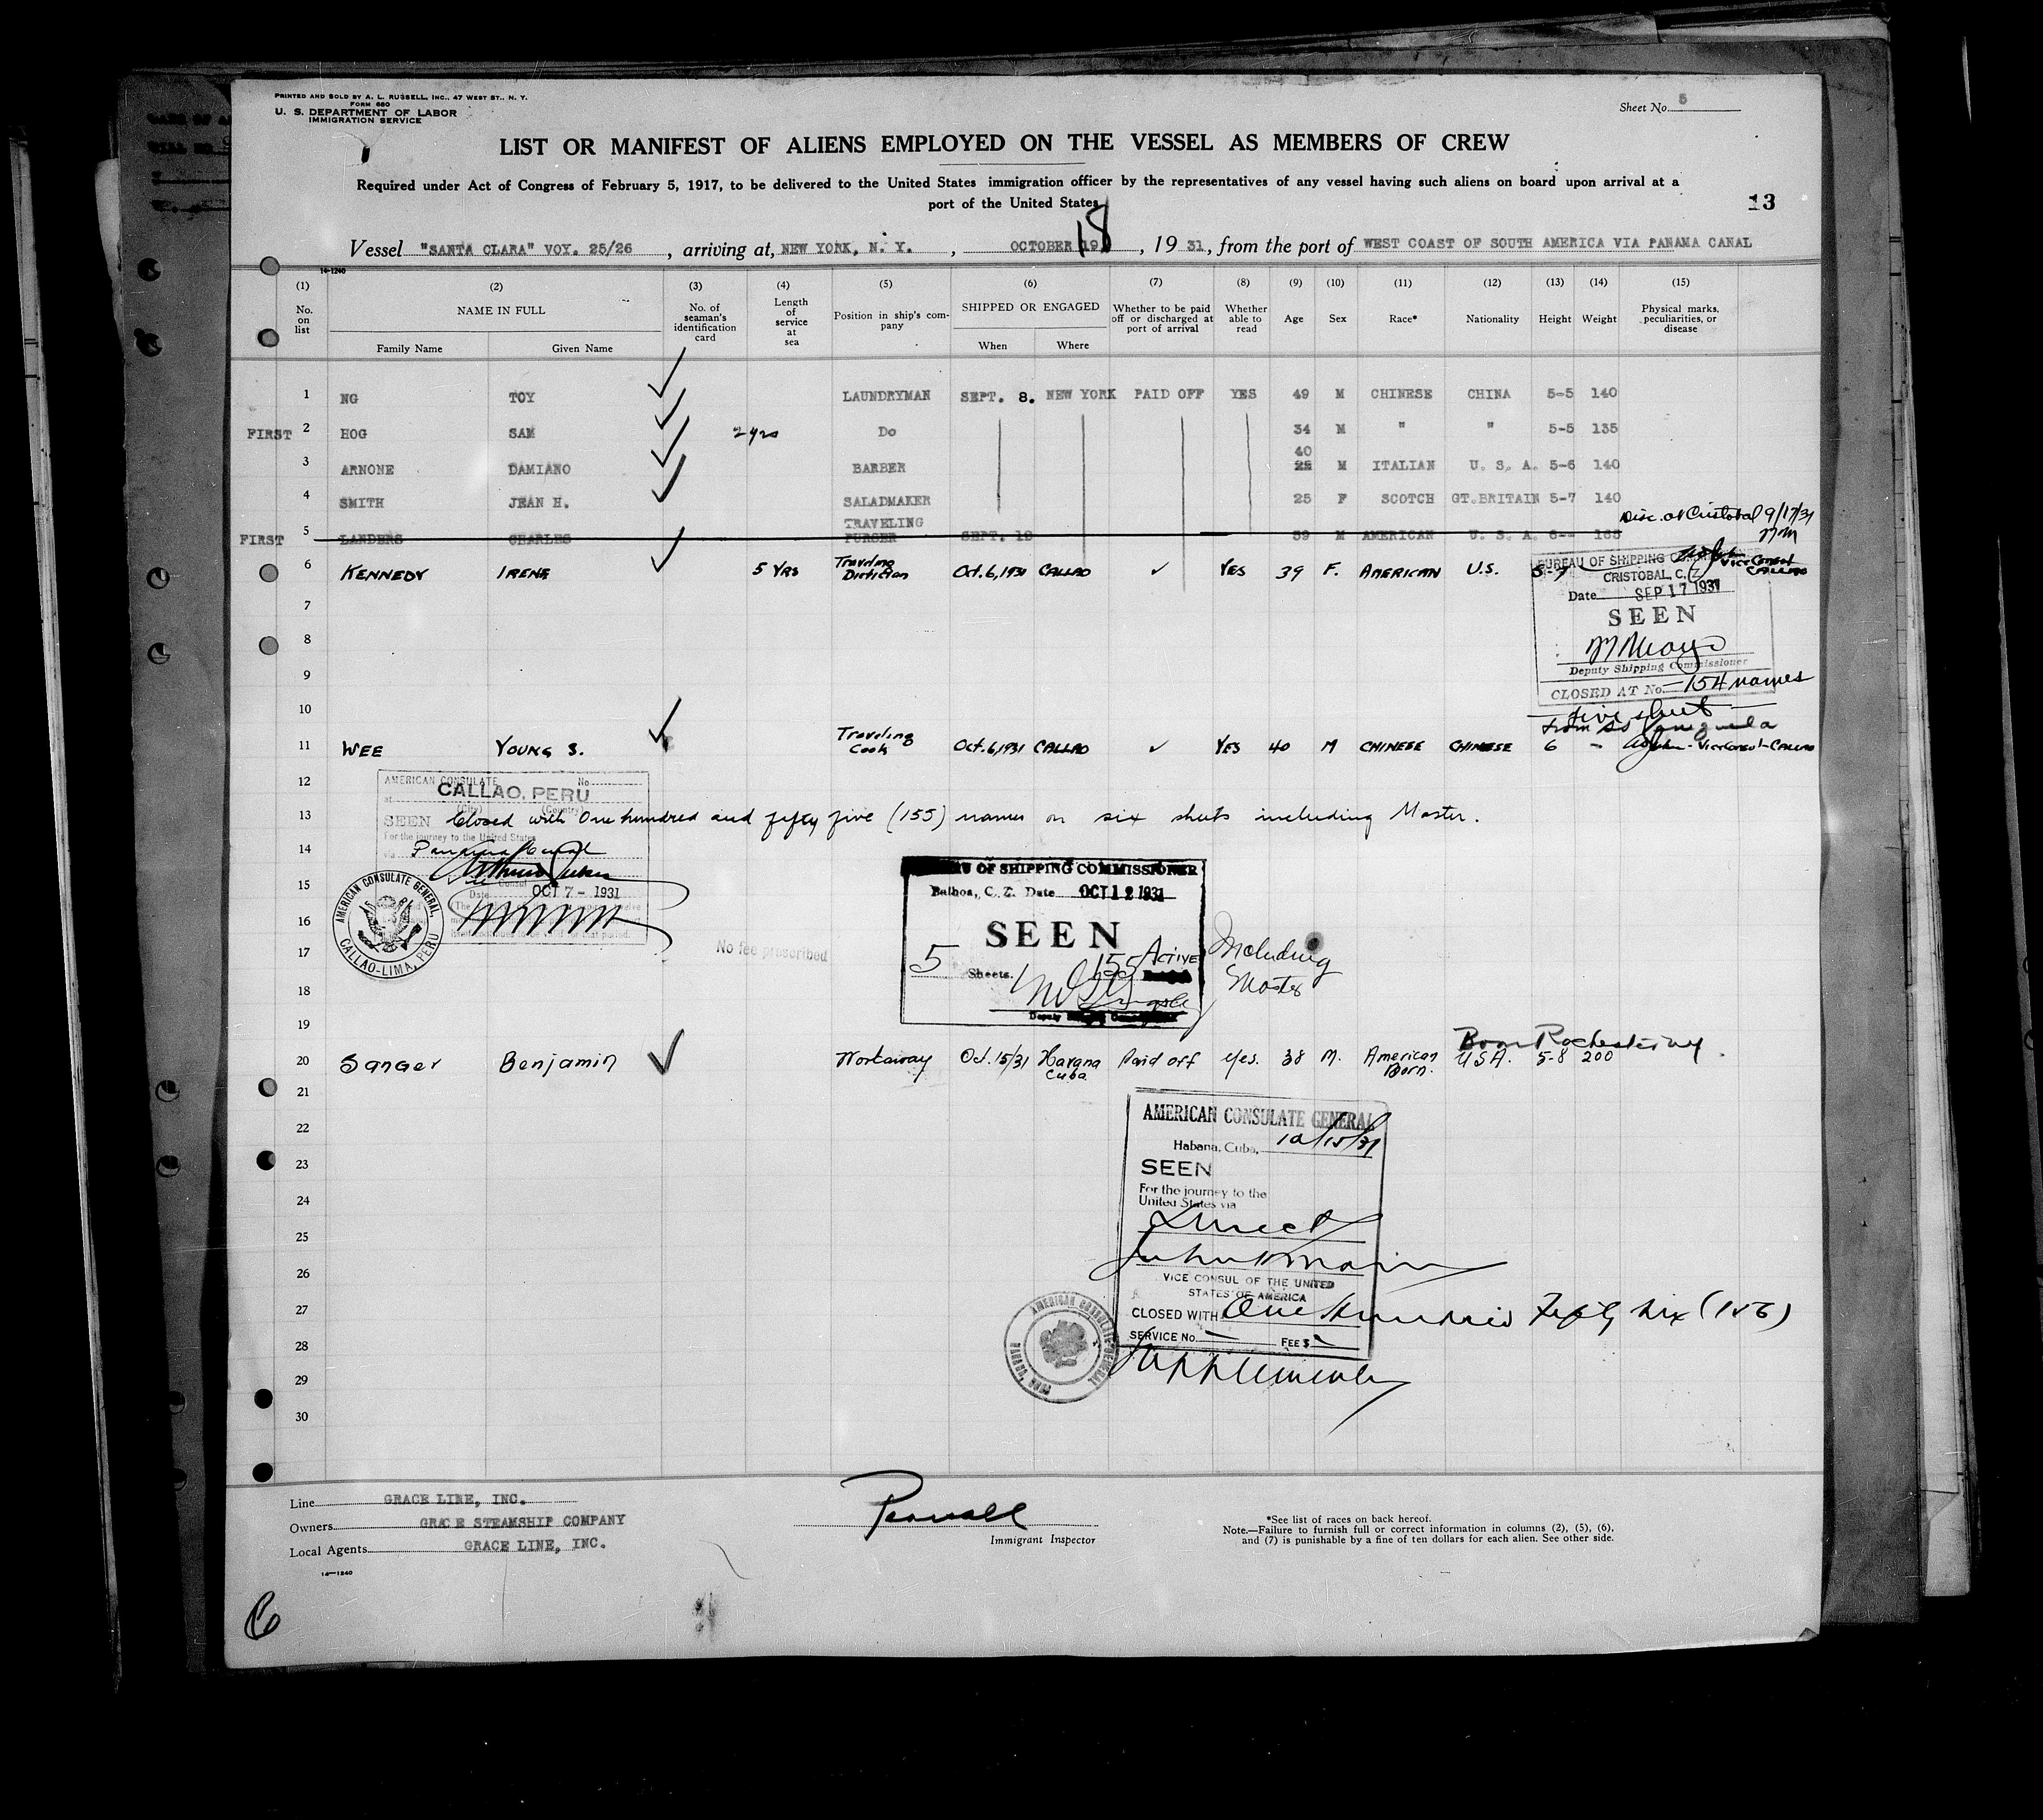 PRINTED AND SOLD BY A. L. RUSSELL, INC., 47 WEST ST., N. Y.
FORM 680
U. S. DEPARTMENT OF LABOR
IMMIGRATION SERVICE
Sheet No. 5
LIST OR MANIFEST OF ALIENS EMPLOYED ON THE VESSEL AS MEMBERS OF CREW
Required under Act of Congress of February 5, 1917, to be delivered to the United States immigration officer by the representatives of any vessel having such aliens on board upon arrival at a
port of the United States
13
18
Vessel "SANTA CLARA" VOY. 25/26, arriving at NEW YORK, N. Y., OCTOBER 19, 1931, from the port of WEST COAST OF SOUTH AMERICA VIA PANAMA CANAL
14-1240
(1) (2) (3) (4) (5) (6) (7) (8) (9) (10) (11) (12) (13) (14) (15)
No. on list
NAME IN FULL
Family Name Given Name
No. of seaman's identification card
Length of service at sea
Position in ship's company
SHIPPED OR ENGAGED
When Where
Whether to be paid off or discharged at port of arrival
Whether able to read
Age Sex Race* Nationality Height Weight
Physical marks, peculiarities, or disease
1 NG TOY LAUNDRYMAN SEPT. 8. NEW YORK PAID OFF YES 49 M CHINESE CHINA 5-5 140
FIRST 2 HOG SAM 2 yrs Do 34 M " " 5-5 135
40
3 ARNONE DAMIANO BARBER 25 M ITALIAN U. S. A. 5-6 140
4 SMITH JEAN H. SALADMAKER 25 F SCOTCH GT.BRITAIN 5-7 140
Disc. at Cristobal 9/17/31
FIRST 5 LANDERS CHARLES TRAVELING PURSER SEPT. 19 39 M AMERICAN U. S. A.
6 KENNEDY IRENE 5 YRS Traveling Dietician Oct. 6, 1931 CALLAO ✓ YES 39 F. AMERICAN U.S. 5-7
Vice Consul CALLAO
BUREAU OF SHIPPING
CRISTOBAL, C. Z.
Date SEP 17 1931
SEEN
Deputy Shipping Commissioner
CLOSED AT No. 154 names
five sheet
7
8
9
10
11 WEE YOUNG S. Traveling Cook Oct. 6, 1931 CALLAO ✓ YES 40 M CHINESE CHINESE 6 - Vice Consul - CALLAO
12
AMERICAN CONSULATE No.
at CALLAO, PERU
(City) (Country)
13 SEEN Closed with One hundred and fifty five (155) names on six sheets including Master.
For the journey to the United States
14
via Panama Canal
15
Consul
Date OCT 7 - 1931
16
AMERICAN CONSULATE GENERAL, CALLAO-LIMA, PERU
17
No fee prescribed
BUREAU OF SHIPPING COMMISSIONER
Balboa, C. Z. Date OCT 12 1931
SEEN
5 Sheets. 155 ACTIVE
Including
Master
Deputy
18
19
Born Rochester NY
20 Sanger Benjamin Workaway Oct. 15/31 Havana Cuba Paid off yes. 38 M. American Born. USA. 5-8 200
21
22
23
24
25
26
27
28
29
30
AMERICAN CONSULATE GENERAL
Habana, Cuba, 10/15/31
SEEN
For the journey to the
United States via
Direct
VICE CONSUL OF THE UNITED
STATES OF AMERICA
CLOSED WITH One Hundred Fifty Six (156)
SERVICE No. FEE $
Supplementary
AMERICAN CONSULATE GENERAL
Line GRACE LINE, INC.
Owners GRACE STEAMSHIP COMPANY
Local Agents GRACE LINE, INC.
14-1240
Immigrant Inspector
*See list of races on back hereof.
Note.—Failure to furnish full or correct information in columns (2), (5), (6),
and (7) is punishable by a fine of ten dollars for each alien. See other side.
6